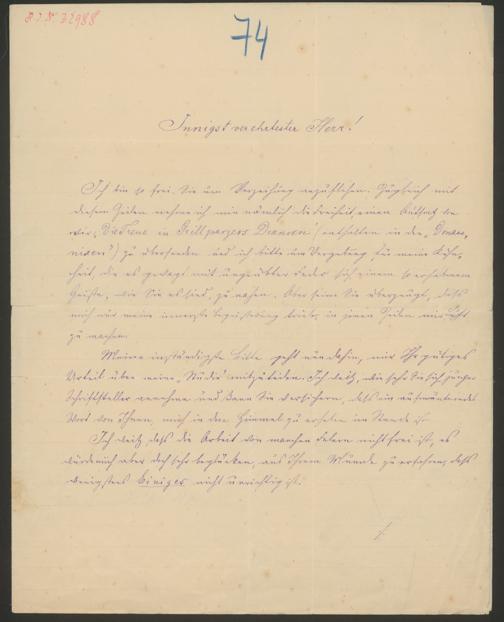 H.I.N. 32988
74
Innigst verehrtester Herr!
Ich bin so frei, Sie um Verzeihung anzuflehen. Zugleich mit
diesen Zeilen nehme ich mir nämlich die Freiheit einen Aufsatz
„Die Treue in Grillparzers Dramen" (enthalten in der
) zu übersenden und ich bitte um Vergebung für meine Kühn-
heit, die es gewagt mit ungeübter Feder sich einem so erhabenen
Geiste, wie Sie es sind, zu nahen. Aber seien Sie überzeugt, dass
mich nur meine innerste Begeisterung
zu machen.
Meine inständigste Bitte geht nun dahin, mir Ihr gütiges
Urteil über meine „Studie" mitzuteilen. Ich weiß, wie sehr Sie sich junger
Schriftsteller annehmen und kann Sie versichern, dass ein aufmunterndes
Wort von Ihnen, mich in den Himmel zu erheben im Stande ist.
Ich weiß, dass die Arbeit von manchen Fehlern nicht frei ist, es
würde mich aber doch sehr beglücken, aus Ihrem Munde zu erfahren, dass
wenigstens Einiges nicht unrichtig ist.